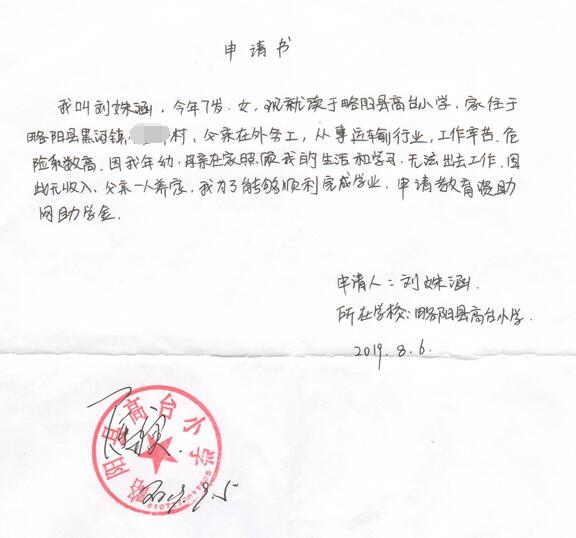 申请书
我叫刘姝涵，今年7岁。女，现就读于略阳县高台小学，家住于
略阳县黑河镇 村，父亲在外务工，从事运输行业，工作辛苦，危
险系数高。因我年幼，母亲在家照顾我的生活和学习，无法出去工作，因
此无收入，父亲一人养家，我为了能够顺利完成学业，申请教育资助
网助学金。
申请人：刘姝涵.
所在学校：略阳县高台小学.
2019.8.6.
略阳县高台小学
属实.